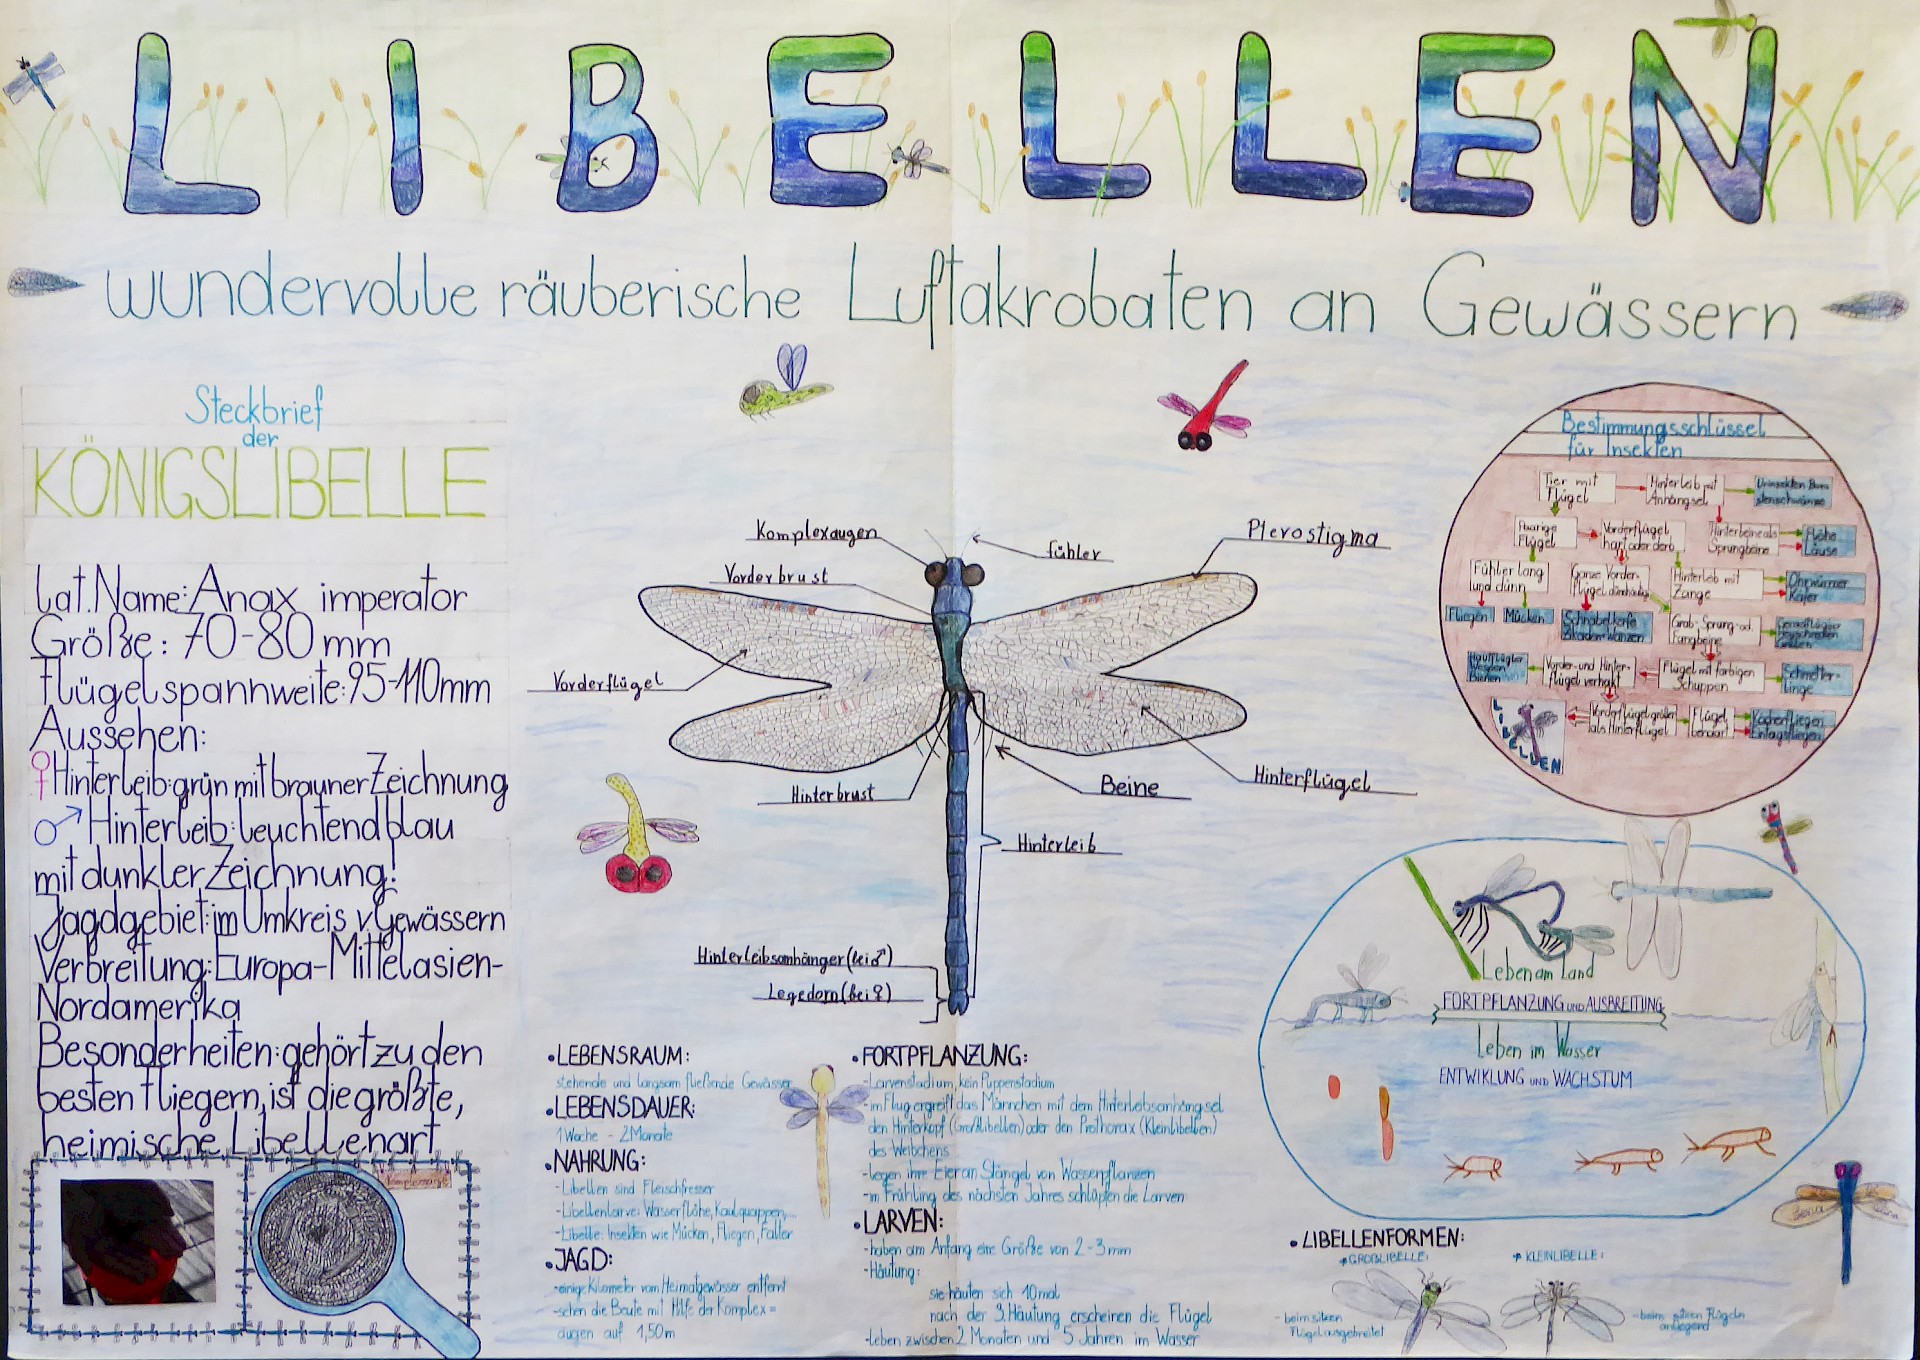 LIBELLEN
wundervolle räuberische Luftakrobaten an Gewässern
Steckbrief
der
KÖNIGSLIBELLE
Lat. Name: Anax imperator
Größe: 70-80 mm
Flügelspannweite: 95-110mm
Aussehen:
♀ Hinterleib: grün mit brauner Zeichnung
♂ Hinterleib: leuchtend blau
mit dunkler Zeichnung!
Jagdgebiet: im Umkreis v. Gewässern
Verbreitung: Europa-Mittelasien-
Nordamerika
Besonderheiten: gehört zu den
besten Fliegern, ist die größte,
heimische Libellenart
Komplexauge
Komplexaugen
Fühler
Pterostigma
Vorderbrust
Vorderflügel
Hinterbrust
Beine
Hinterflügel
Hinterleib
Hinterleibsanhänger (bei ♂)
Legedorn (bei ♀)
• LEBENSRAUM:
stehende und langsam fließende Gewässer
• LEBENSDAUER:
1 Woche - 2 Monate
• NAHRUNG:
- Libellen sind Fleischfresser
- Libellenlarve: Wasserflöhe, Kaulquappen,
- Libelle: Insekten wie Mücken, Fliegen, Falter
• JAGD:
- einige Kilometer vom Heimatgewässer entfernt
- sehen die Beute mit Hilfe der Komplex=
augen auf 1,50m
• FORTPFLANZUNG:
- Larvenstadium, kein Puppenstadium
- im Flug ergreift das Männchen mit dem Hinterleibsanhängsel
den Hinterkopf (Großlibellen) oder den Prothorax (Kleinlibellen)
des Weibchens
- legen ihre Eier an Stängel von Wasserpflanzen
- im Frühling des nächsten Jahres schlüpfen die Larven
• LARVEN:
- haben am Anfang eine Größe von 2-3mm
- Häutung:
sie häuten sich 10mal
nach der 3. Häutung erscheinen die Flügel
- Leben zwischen 2 Monaten und 5 Jahren im Wasser
Bestimmungsschlüssel
für Insekten
Tier mit
Flügel
Hinterleib mit
Anhängsel
Urinsekten Bors
tenschwänze
Paarige
Flügel
Vorderflügel
hart oder derb
Hinterbeine als
Sprungbeine
Flöhe
Läuse
Fühler lang
und dünn
Ganze Vorder-
flügel durchsichtig
Hinterleib mit
Zange
Ohrwürmer
Käfer
Fliegen
Mücken
Schnabelkerfe
Zikaden-Wanzen
Grab-Sprung-od.
Fangbeine
Geradflügler
Heuschrecken
Grillen
Hautflügler
Wespen
Bienen
Vorder- und Hinter-
flügel verhakt
Flügel mit farbigen
Schuppen
Schmetter-
linge
LIBELLEN
Vorderflügel größer
als Hinterflügel
Flügel
behaart
Köcherfliegen
Eintagsfliegen
Leben am Land
FORTPFLANZUNG UND AUSBREITUNG
Leben im Wasser
ENTWIKLUNG UND WACHSTUM
• LIBELLENFORMEN:
* GROßLIBELLE:
* KLEINLIBELLE:
- beim sitzen
Flügel ausgebreitet
- beim sitzen Flügeln
anliegend